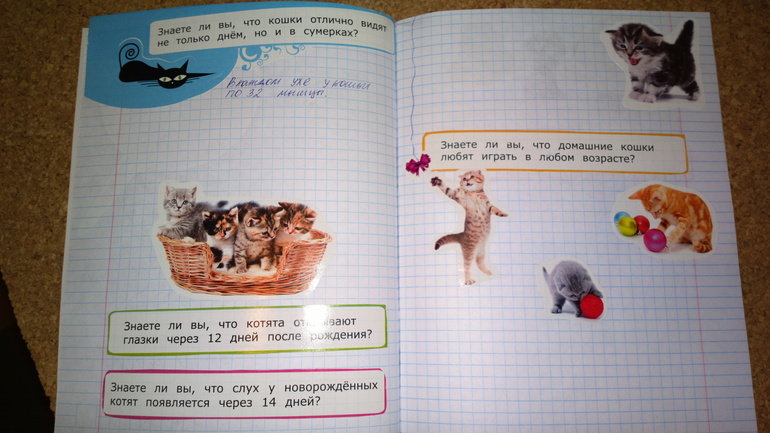 Знаете ли вы, что кошки отлично видят
не только днём, но и в сумерках?
В каждом ухе у кошки
по 32 мышцы.
Знаете ли вы, что котята открывают
глазки через 12 дней после рождения?
Знаете ли вы, что слух у новорождённых
котят появляется через 14 дней?
Знаете ли вы, что домашние кошки
любят играть в любом возрасте?